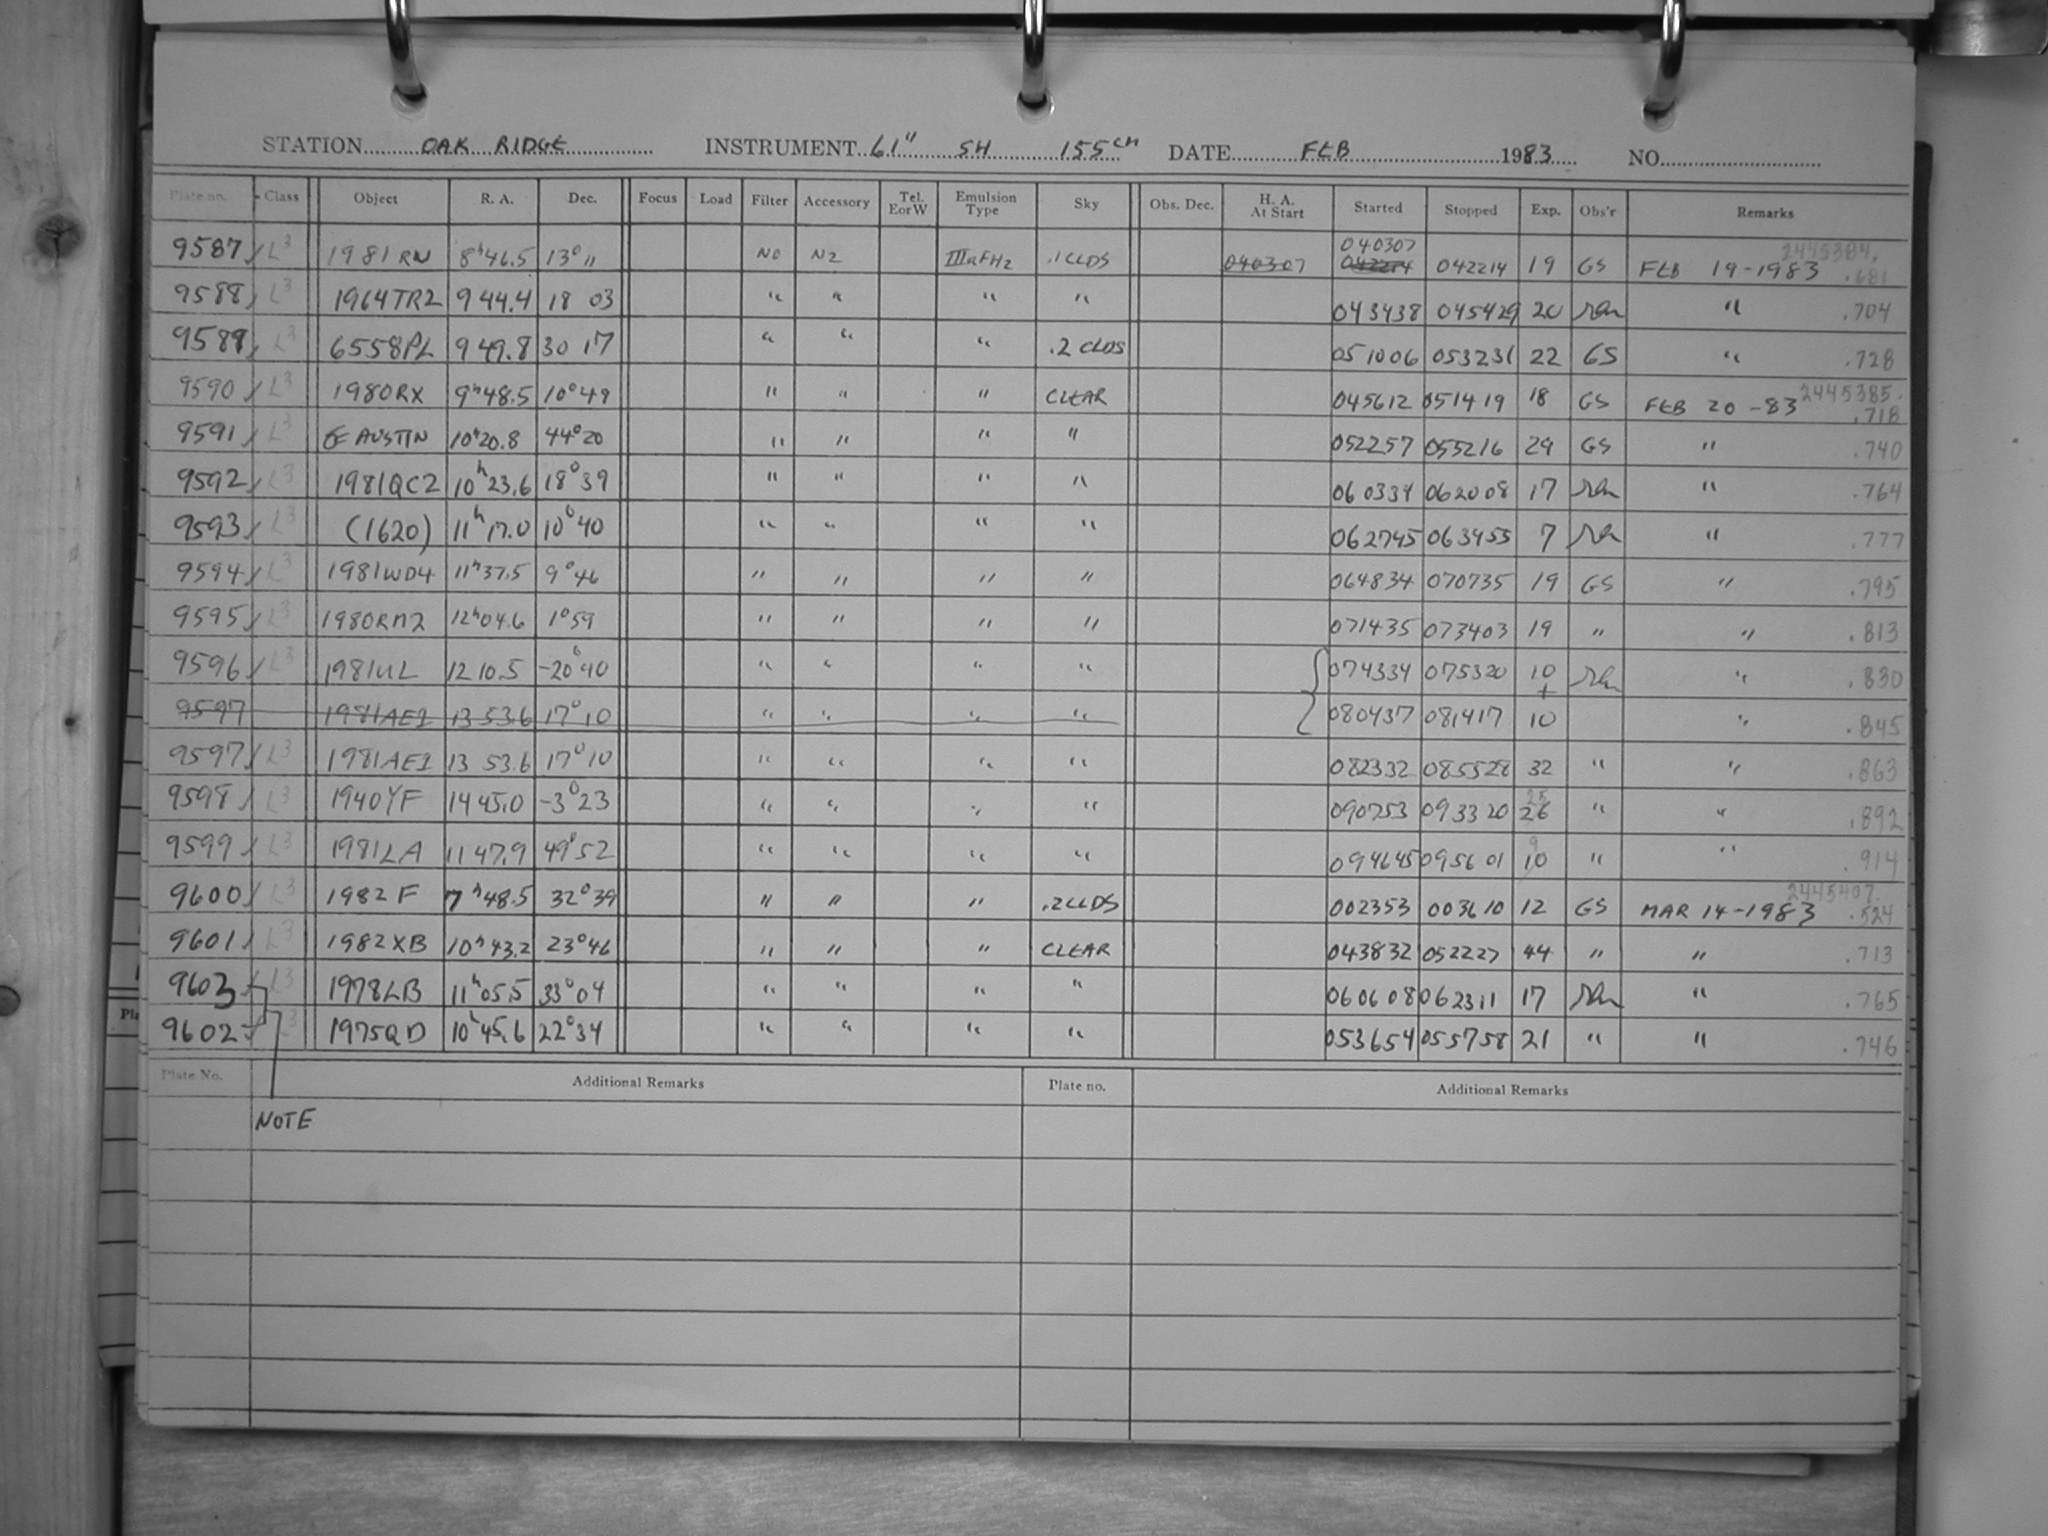 STATION OAK RIDGE INSTRUMENT 61" SH 155cm DATE FEB 1983 NO.
Plate no. Class Object R. A. Dec. Focus Load Filter Accessory Tel. EorW Emulsion Type Sky Obs. Dec. H. A. At Start Started Stopped Exp. Obs'r Remarks
9587 L3 1981RN 8h46.5 13° 11 NO N2 IIIaFH2 .1CLDS 040307 040307 042214 042214 19 GS FEB 19-1983 2445384. .681
9588 L3 1964TR2 9 44.4 18 03 " " " " 043438 045429 20 " .704
9589 L3 6558PL 9 49.8 30 17 " " " .2 CLDS 051006 053231 22 GS " .728
9590 L3 1980RX 9h48.5 10°49 " " " CLEAR 045612 051419 18 GS FEB 20-83 2445385. .718
9591 L3 AUSTIN 10h20.8 44°20 " " " " 052257 055216 29 GS " .740
9592 L3 1981QC2 10h23.6 18°39 " " " " 060334 062008 17 " .764
9593 L3 (1620) 11h17.0 10°40 " " " " 062745 063455 7 " .777
9594 L3 1981WD4 11h37.5 9°46 " " " " 064834 070735 19 GS " .795
9595 L3 1980RM2 12h04.6 1°59 " " " " 071435 073403 19 " " .813
9596 L3 1981UL 12 10.5 -20°40 " " " " 074334 075320 10 + " .830
9597 1981AE1 13 53.6 17°10 " " " " 080437 081417 10 " .845
9597 L3 1981AE1 13 53.6 17°10 " " " " 082332 085528 32 " " .863
9598 L3 1940YF 14 45.0 -3°23 " " " " 090753 093320 25 26 " " .892
9599 L3 1981LA 11 47.9 49°52 " " " " 094645 095601 9 10 " " .914
9600 L3 1982 F 7h48.5 32°39 " " " .2CLDS 002353 003610 12 GS MAR 14-1983 2445407. .524
9601 L3 1982XB 10h43.2 23°46 " " " CLEAR 043832 052227 44 " " .713
9603 L3 1978LB 11h05.5 33°04 " " " " 060608 062311 17 " .765
9602 L3 1975QD 10h45.6 22°34 " " " " 053654 055758 21 " " .746
Plate No. Additional Remarks Plate no. Additional Remarks
NOTE
Pla